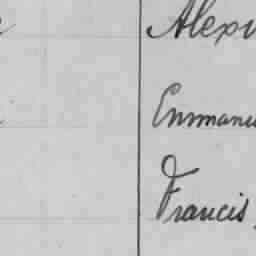 Alexa
Emmanu
Francis